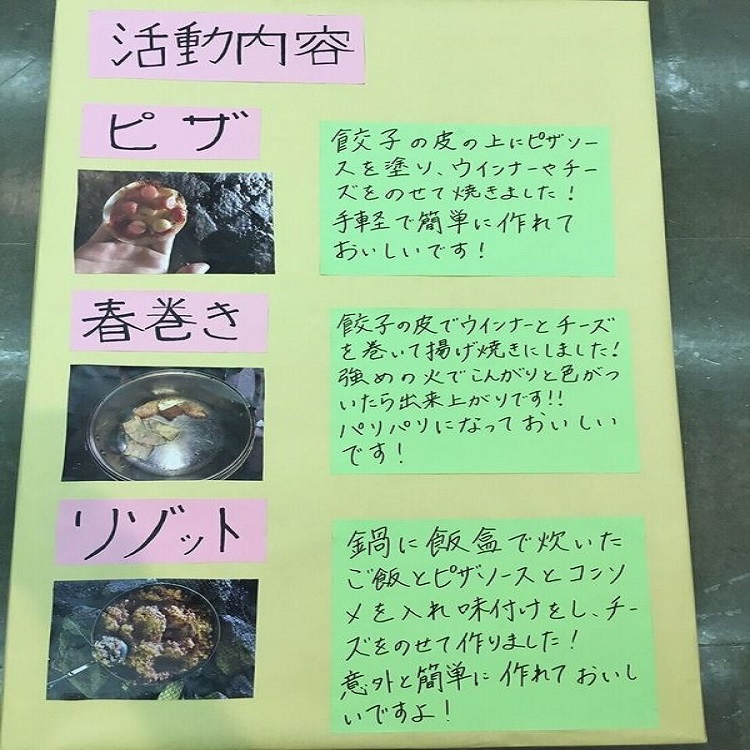 活動内容
ピザ
餃子の皮の上にピザソー
スを塗り、ウインナーやチー
ズをのせて焼きました!
手軽で簡単に作れて
おいしいです!
春巻き
餃子の皮でウインナーとチーズ
を巻いて揚げ焼きにしました!
強めの火でこんがりと色がつ
いたら出来上がりです!!
パリパリになっておいしい
です!
リゾット
鍋に飯盒で炊いた
ご飯とピザソースとコンソ
メを入れ味付けをし、チー
ズをのせて作りました!
意外と簡単に作れておいし
いですよ!